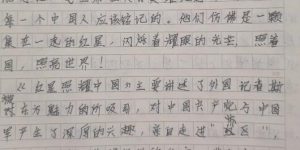 每一个中国人应该铭记的。他们仿佛是一颗
集在一起的红星，闪烁着耀眼的光芒，照着
国，照亮世界！
《红星照耀中国》主要讲述了外国记者斯
被东方魅力的所吸引，对中国共产党
军产生了深厚的兴趣，亲自走进“苏区”，